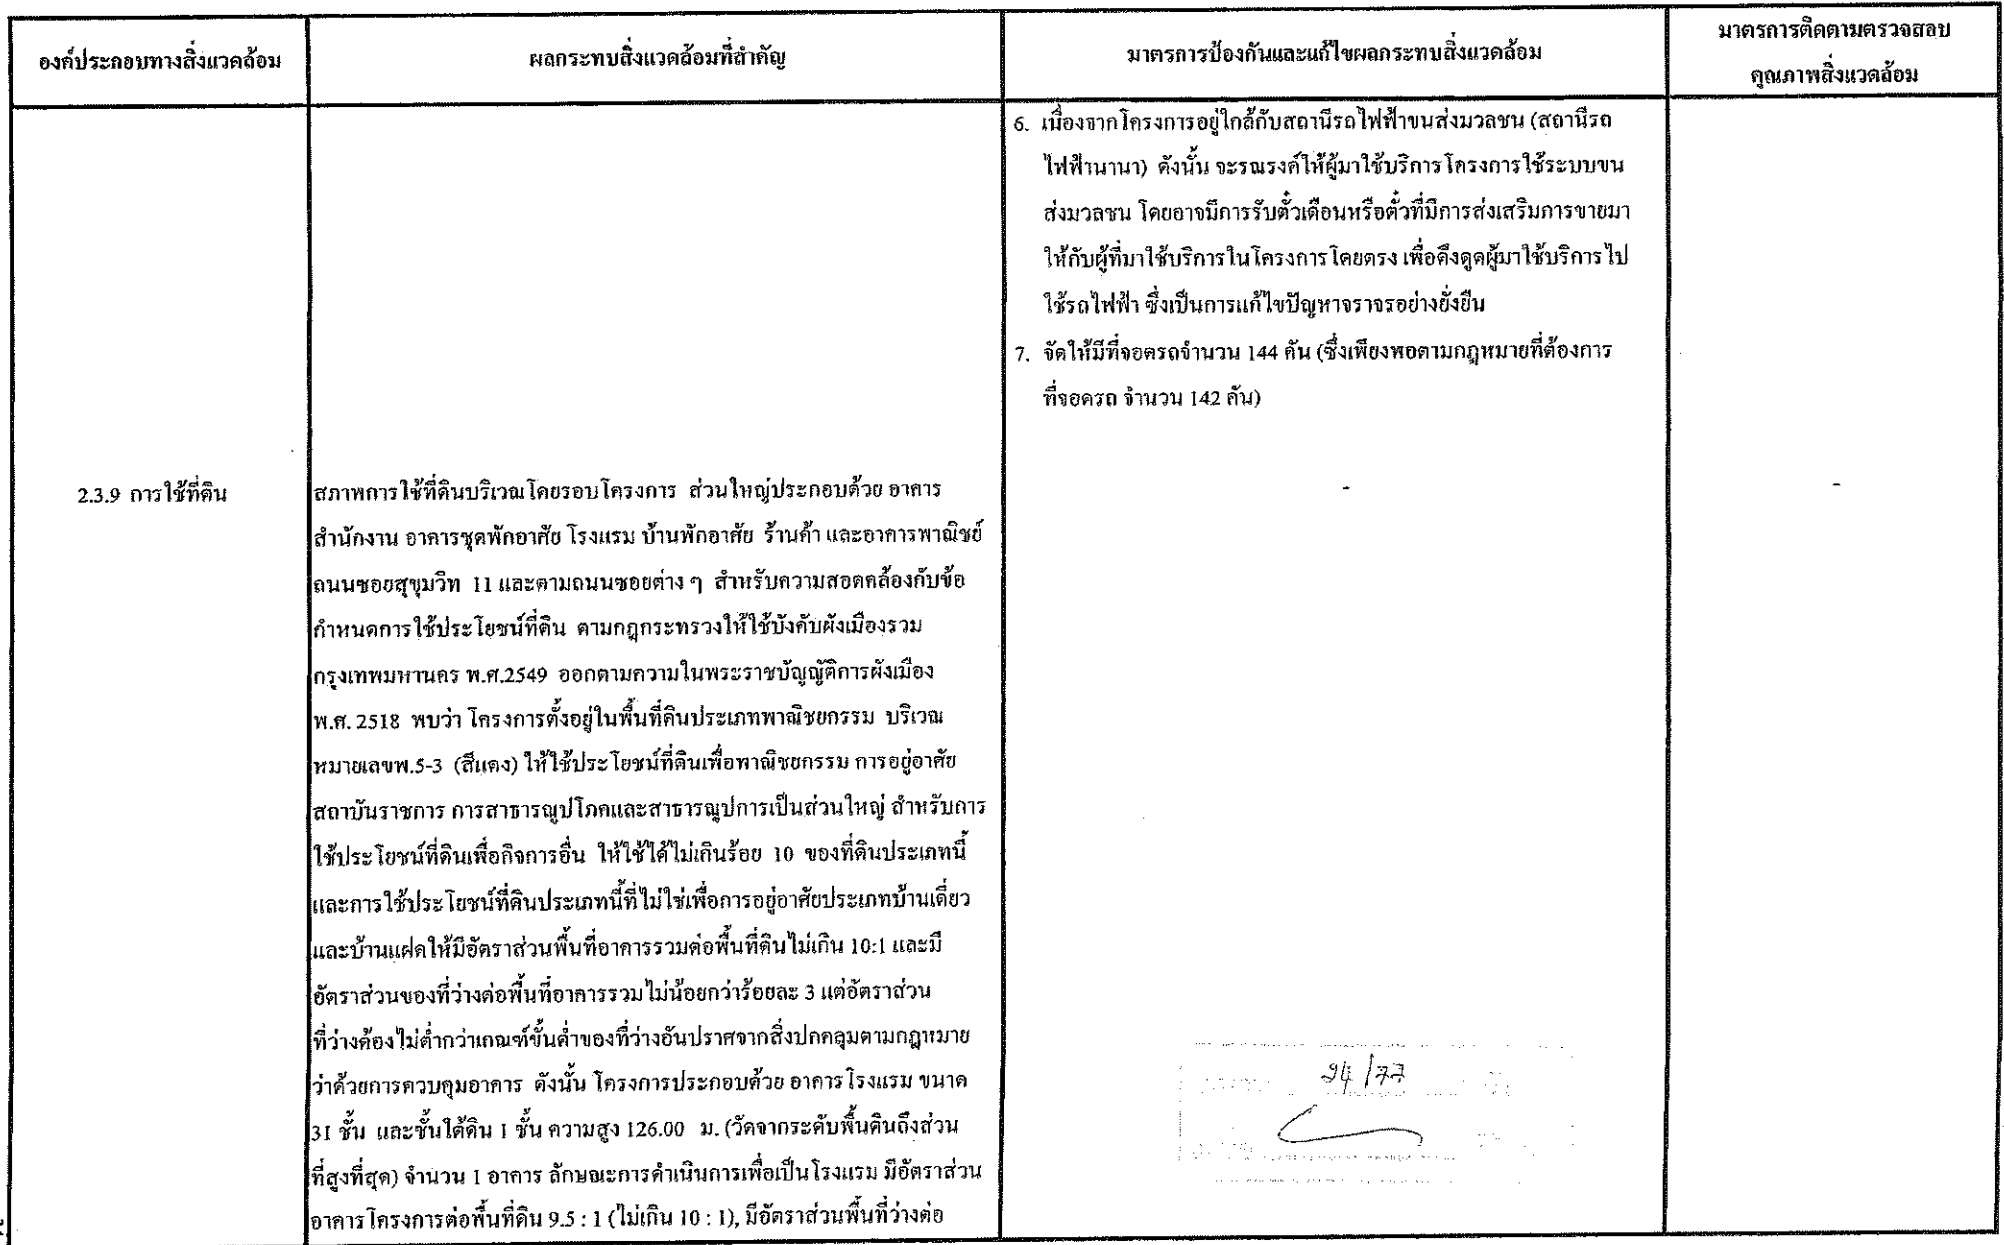 องค์ประกอบทางสิ่งแวดล้อม
ผลกระทบสิ่งแวดล้อมที่สำคัญ
มาตรการป้องกันและแก้ไขผลกระทบสิ่งแวดล้อม
มาตรการติดตามตรวจสอบ
คุณภาพสิ่งแวดล้อม
6. เนื่องจากโครงการอยู่ใกล้กับสถานีรถไฟฟ้าขนส่งมวลชน (สถานีรถ
ไฟฟ้านานา) ดังนั้น จะรณรงค์ให้ผู้มาใช้บริการโครงการใช้ระบบขน
ส่งมวลชน โดยอาจมีการรับตั๋วเดือนหรือตั๋วที่มีการส่งเสริมการขายมา
ให้กับผู้ที่มาใช้บริการในโครงการโดยตรง เพื่อดึงดูดผู้มาใช้บริการไป
ใช้รถไฟฟ้า ซึ่งเป็นการแก้ไขปัญหาจราจรอย่างยั่งยืน
7. จัดให้มีที่จอดรถจำนวน 144 คัน (ซึ่งเพียงพอตามกฎหมายที่ต้องการ
ที่จอดรถ จำนวน 142 คัน)
2.3.9 การใช้ที่ดิน
สภาพการใช้ที่ดินบริเวณโดยรอบโครงการ ส่วนใหญ่ประกอบด้วย อาคาร
สำนักงาน อาคารชุดพักอาศัย โรงแรม บ้านพักอาศัย ร้านค้า และอาคารพาณิชย์
ถนนซอยสุขุมวิท 11 และตามถนนซอยต่าง ๆ สำหรับความสอดคล้องกับข้อ
กำหนดการใช้ประโยชน์ที่ดิน ตามกฎกระทรวงให้ใช้บังคับผังเมืองรวม
กรุงเทพมหานคร พ.ศ.2549 ออกตามความในพระราชบัญญัติการผังเมือง
พ.ศ. 2518 พบว่า โครงการตั้งอยู่ในพื้นที่ดินประเภทพาณิชยกรรม บริเวณ
หมายเลขพ.5-3 (สีแดง) ให้ใช้ประโยชน์ที่ดินเพื่อพาณิชยกรรม การอยู่อาศัย
สถาบันราชการ การสาธารณูปโภคและสาธารณูปการเป็นส่วนใหญ่ สำหรับการ
ใช้ประโยชน์ที่ดินเพื่อกิจการอื่น ให้ใช้ได้ไม่เกินร้อย 10 ของที่ดินประเภทนี้
และการใช้ประโยชน์ที่ดินประเภทนี้ที่ไม่ใช่เพื่อการอยู่อาศัยประเภทบ้านเดี่ยว
และบ้านแฝดให้มีอัตราส่วนพื้นที่อาคารรวมต่อพื้นที่ดินไม่เกิน 10:1 และมี
อัตราส่วนของที่ว่างต่อพื้นที่อาคารรวมไม่น้อยกว่าร้อยละ 3 แต่อัตราส่วน
ที่ว่างต้องไม่ต่ำกว่าเกณฑ์ขั้นต่ำของที่ว่างอันปราศจากสิ่งปกคลุมตามกฎหมาย
ว่าด้วยการควบคุมอาคาร ดังนั้น โครงการประกอบด้วย อาคารโรงแรม ขนาด
31 ชั้น และชั้นใต้ดิน 1 ชั้น ความสูง 126.00 ม. (วัดจากระดับพื้นดินถึงส่วน
ที่สูงที่สุด) จำนวน 1 อาคาร ลักษณะการดำเนินการเพื่อเป็นโรงแรม มีอัตราส่วน
อาคารโครงการต่อพื้นที่ดิน 9.5 : 1 (ไม่เกิน 10 : 1), มีอัตราส่วนพื้นที่ว่างต่อ
-
-